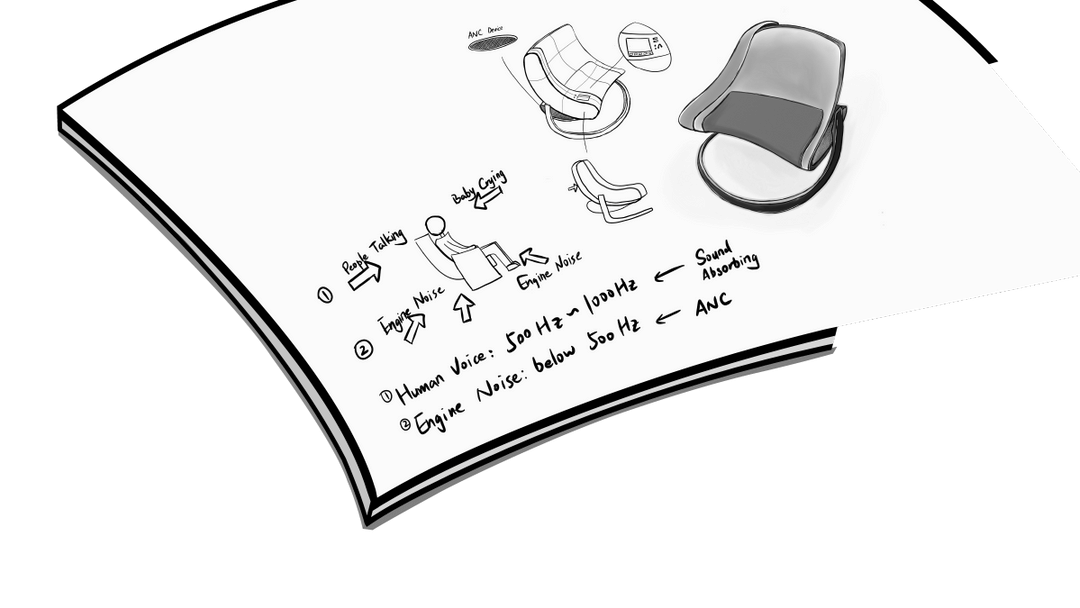 ANC Device
Baby Crying
① People Talking
Engine Noise
② Engine Noise
① Human Voice: 500 Hz ~ 1000 Hz ← Sound Absorbing
② Engine Noise: below 500 Hz ← ANC